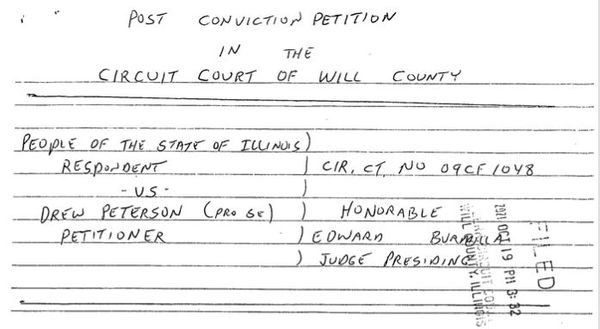 POST CONVICTION PETITION
IN THE
CIRCUIT COURT OF WILL COUNTY
PEOPLE OF THE STATE OF ILLINOIS)
RESPONDENT ) CIR. CT. NO 09CF1048
-VS- )
DREW PETERSON (PRO SE) ) HONORABLE
PETITIONER ) EDWARD BURMILLA
) JUDGE PRESIDING
FILED
2021 OCT 19 PM 3:32
WILL COUNTY, ILLINOIS